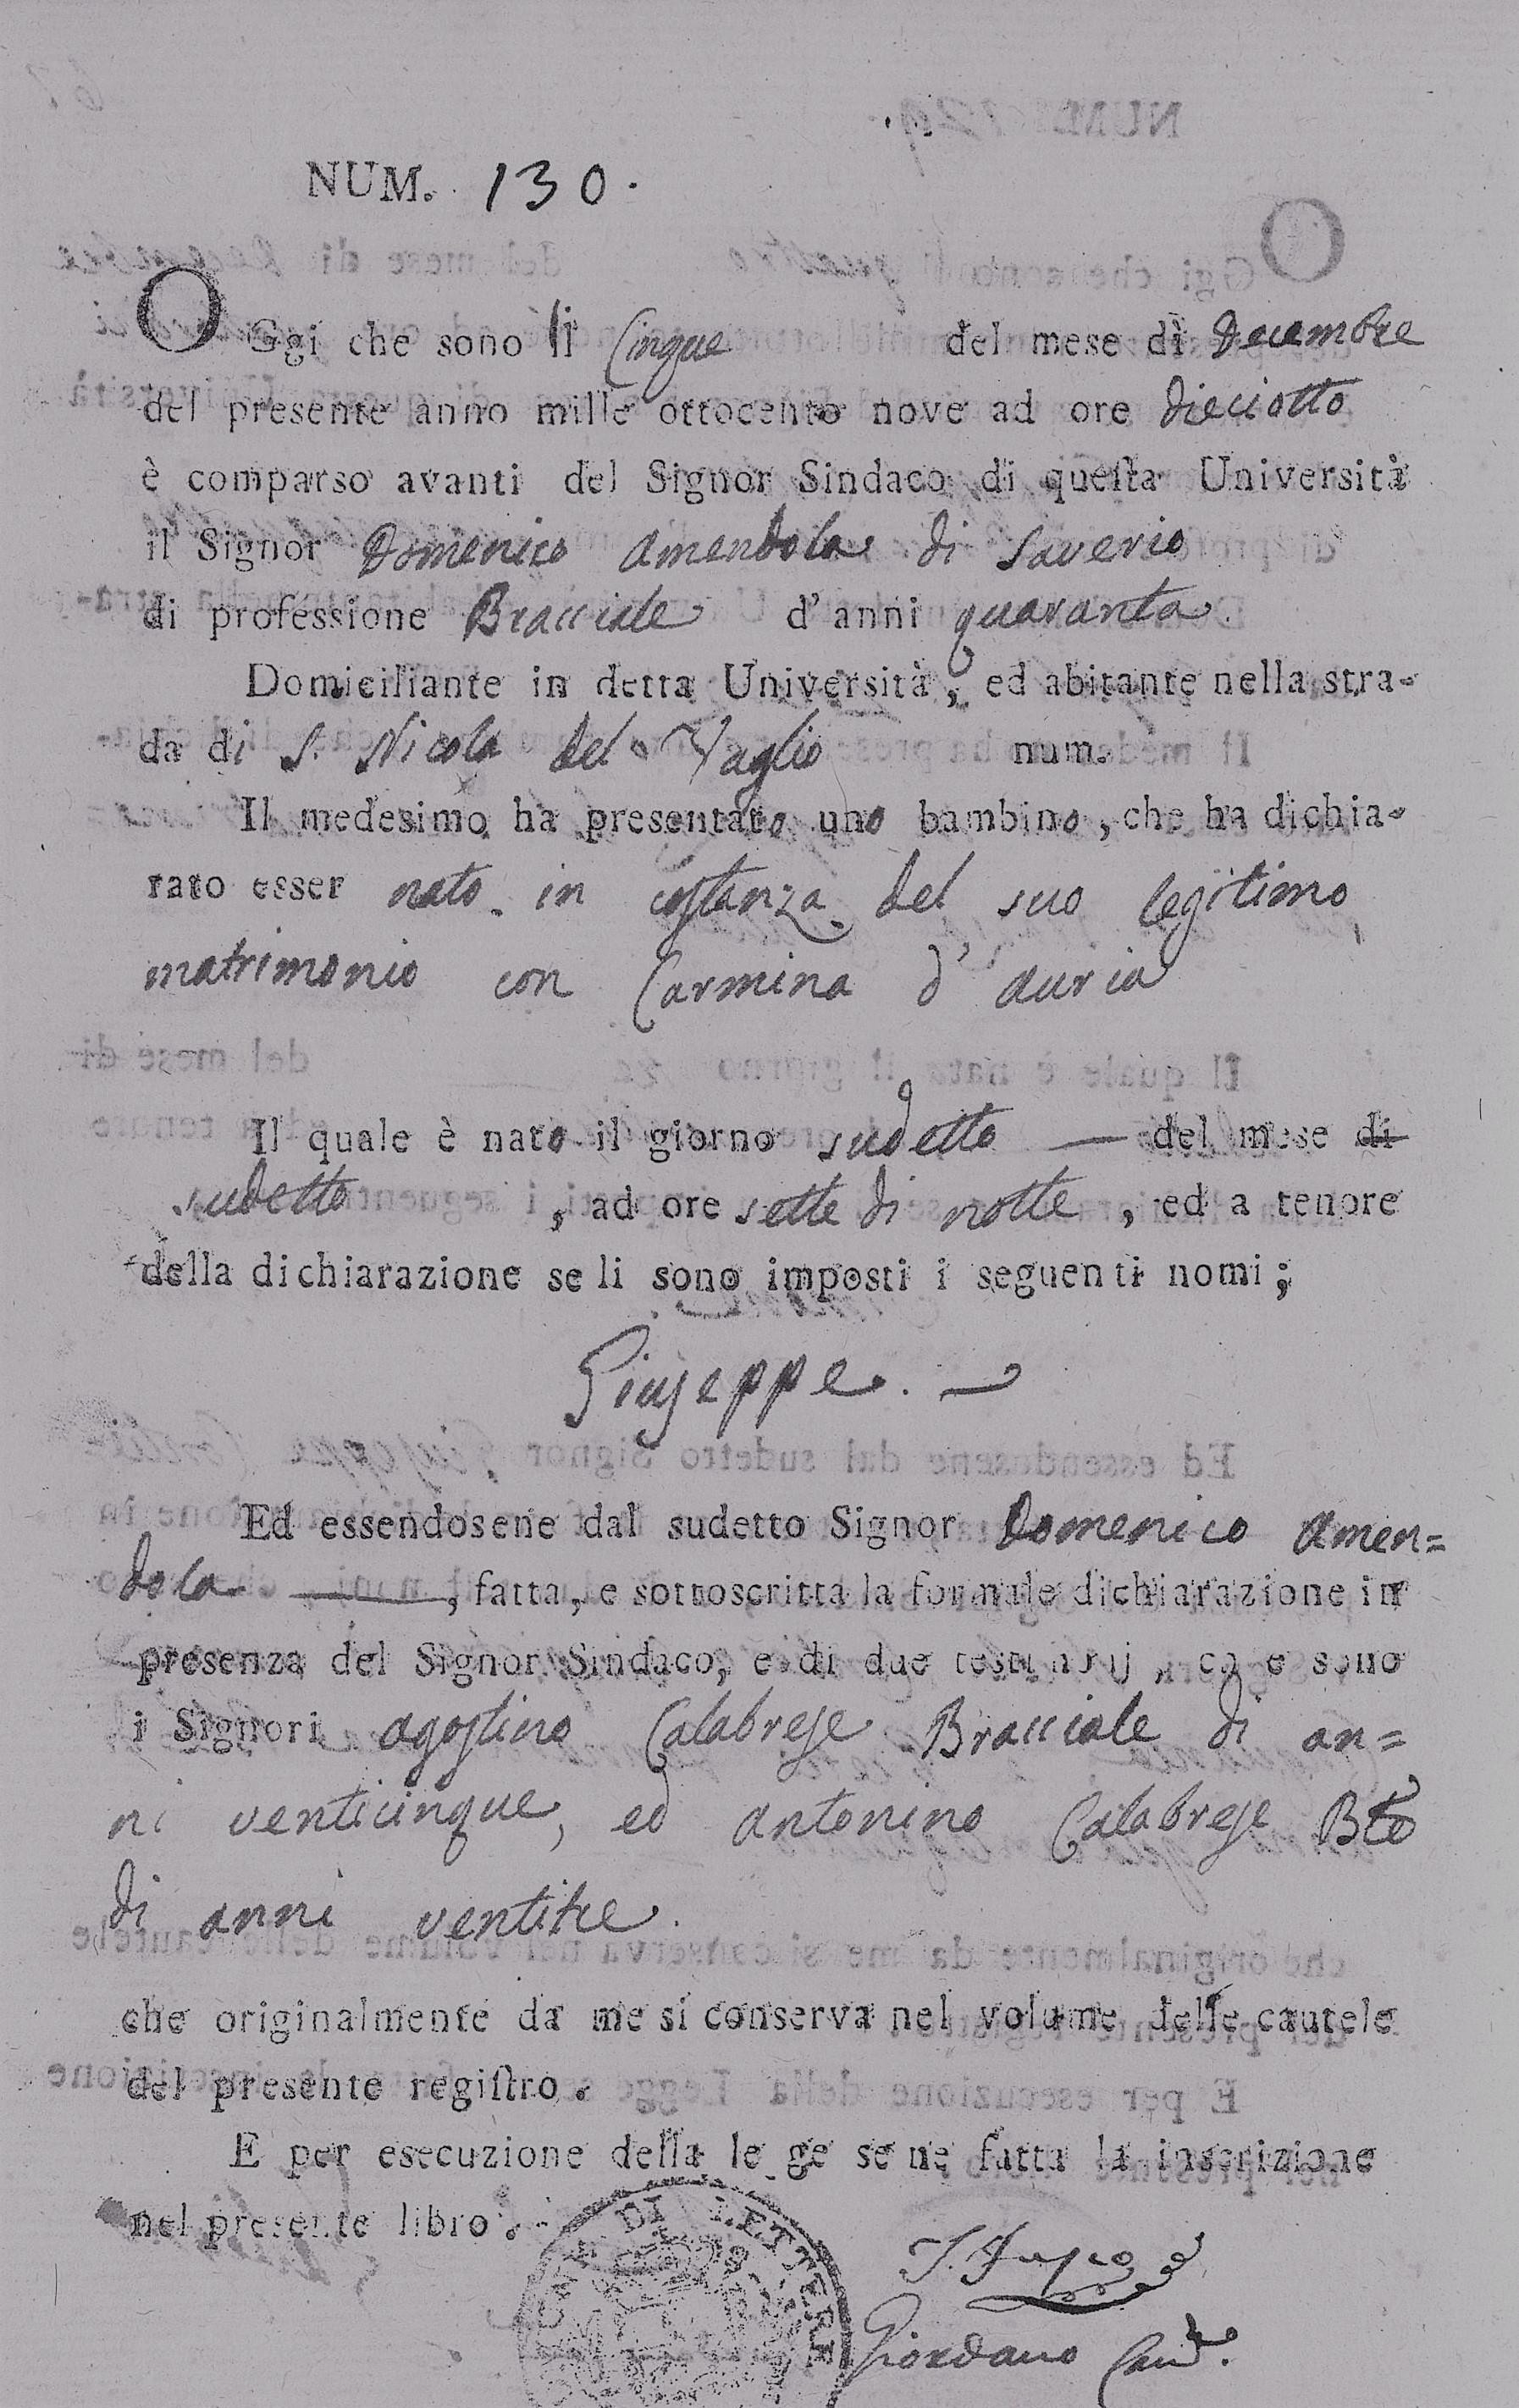 NUM. 130.
OGgi che sono li Cinque del mese di Decembre
del presente anno mille ottocento nove ad ore dieciotto
è comparso avanti del Signor Sindaco di queſta Università
il Signor Domenico Amendola di Saverio
di professione Bracciale d'anni quaranta.
Domiciliante in detta Università, ed abitante nella stra-
da di S. Nicola del Vaglio num.
Il medesimo ha presentato uno bambino, che ha dichia-
rato esser nato in costanza del suo legitimo
matrimonio con Carmina d'Auria
Il quale è nato il giorno sudetto — del mese di
sudetto, ad ore sette di notte, ed a tenore
della dichiarazione se li sono imposti i seguenti nomi;
Giuseppe. —
Ed essendosene dal sudetto Signor Domenico Amen=
dola —, fatta, e sottoscritta la formale dichiarazione in
presenza del Signor Sindaco, e di due testimonj, che sono
i Signori Agostino Calabrese Bracciale di an=
ni venticinque, ed Antonino Calabrese Ble
di anni ventitre.
che originalmente da me si conserva nel volume delle cautele
del presente regiſtro.
E per esecuzione della legge se ne fatta la inscrizione
nel presente libro.
DI LETTERE
Giordano Can.